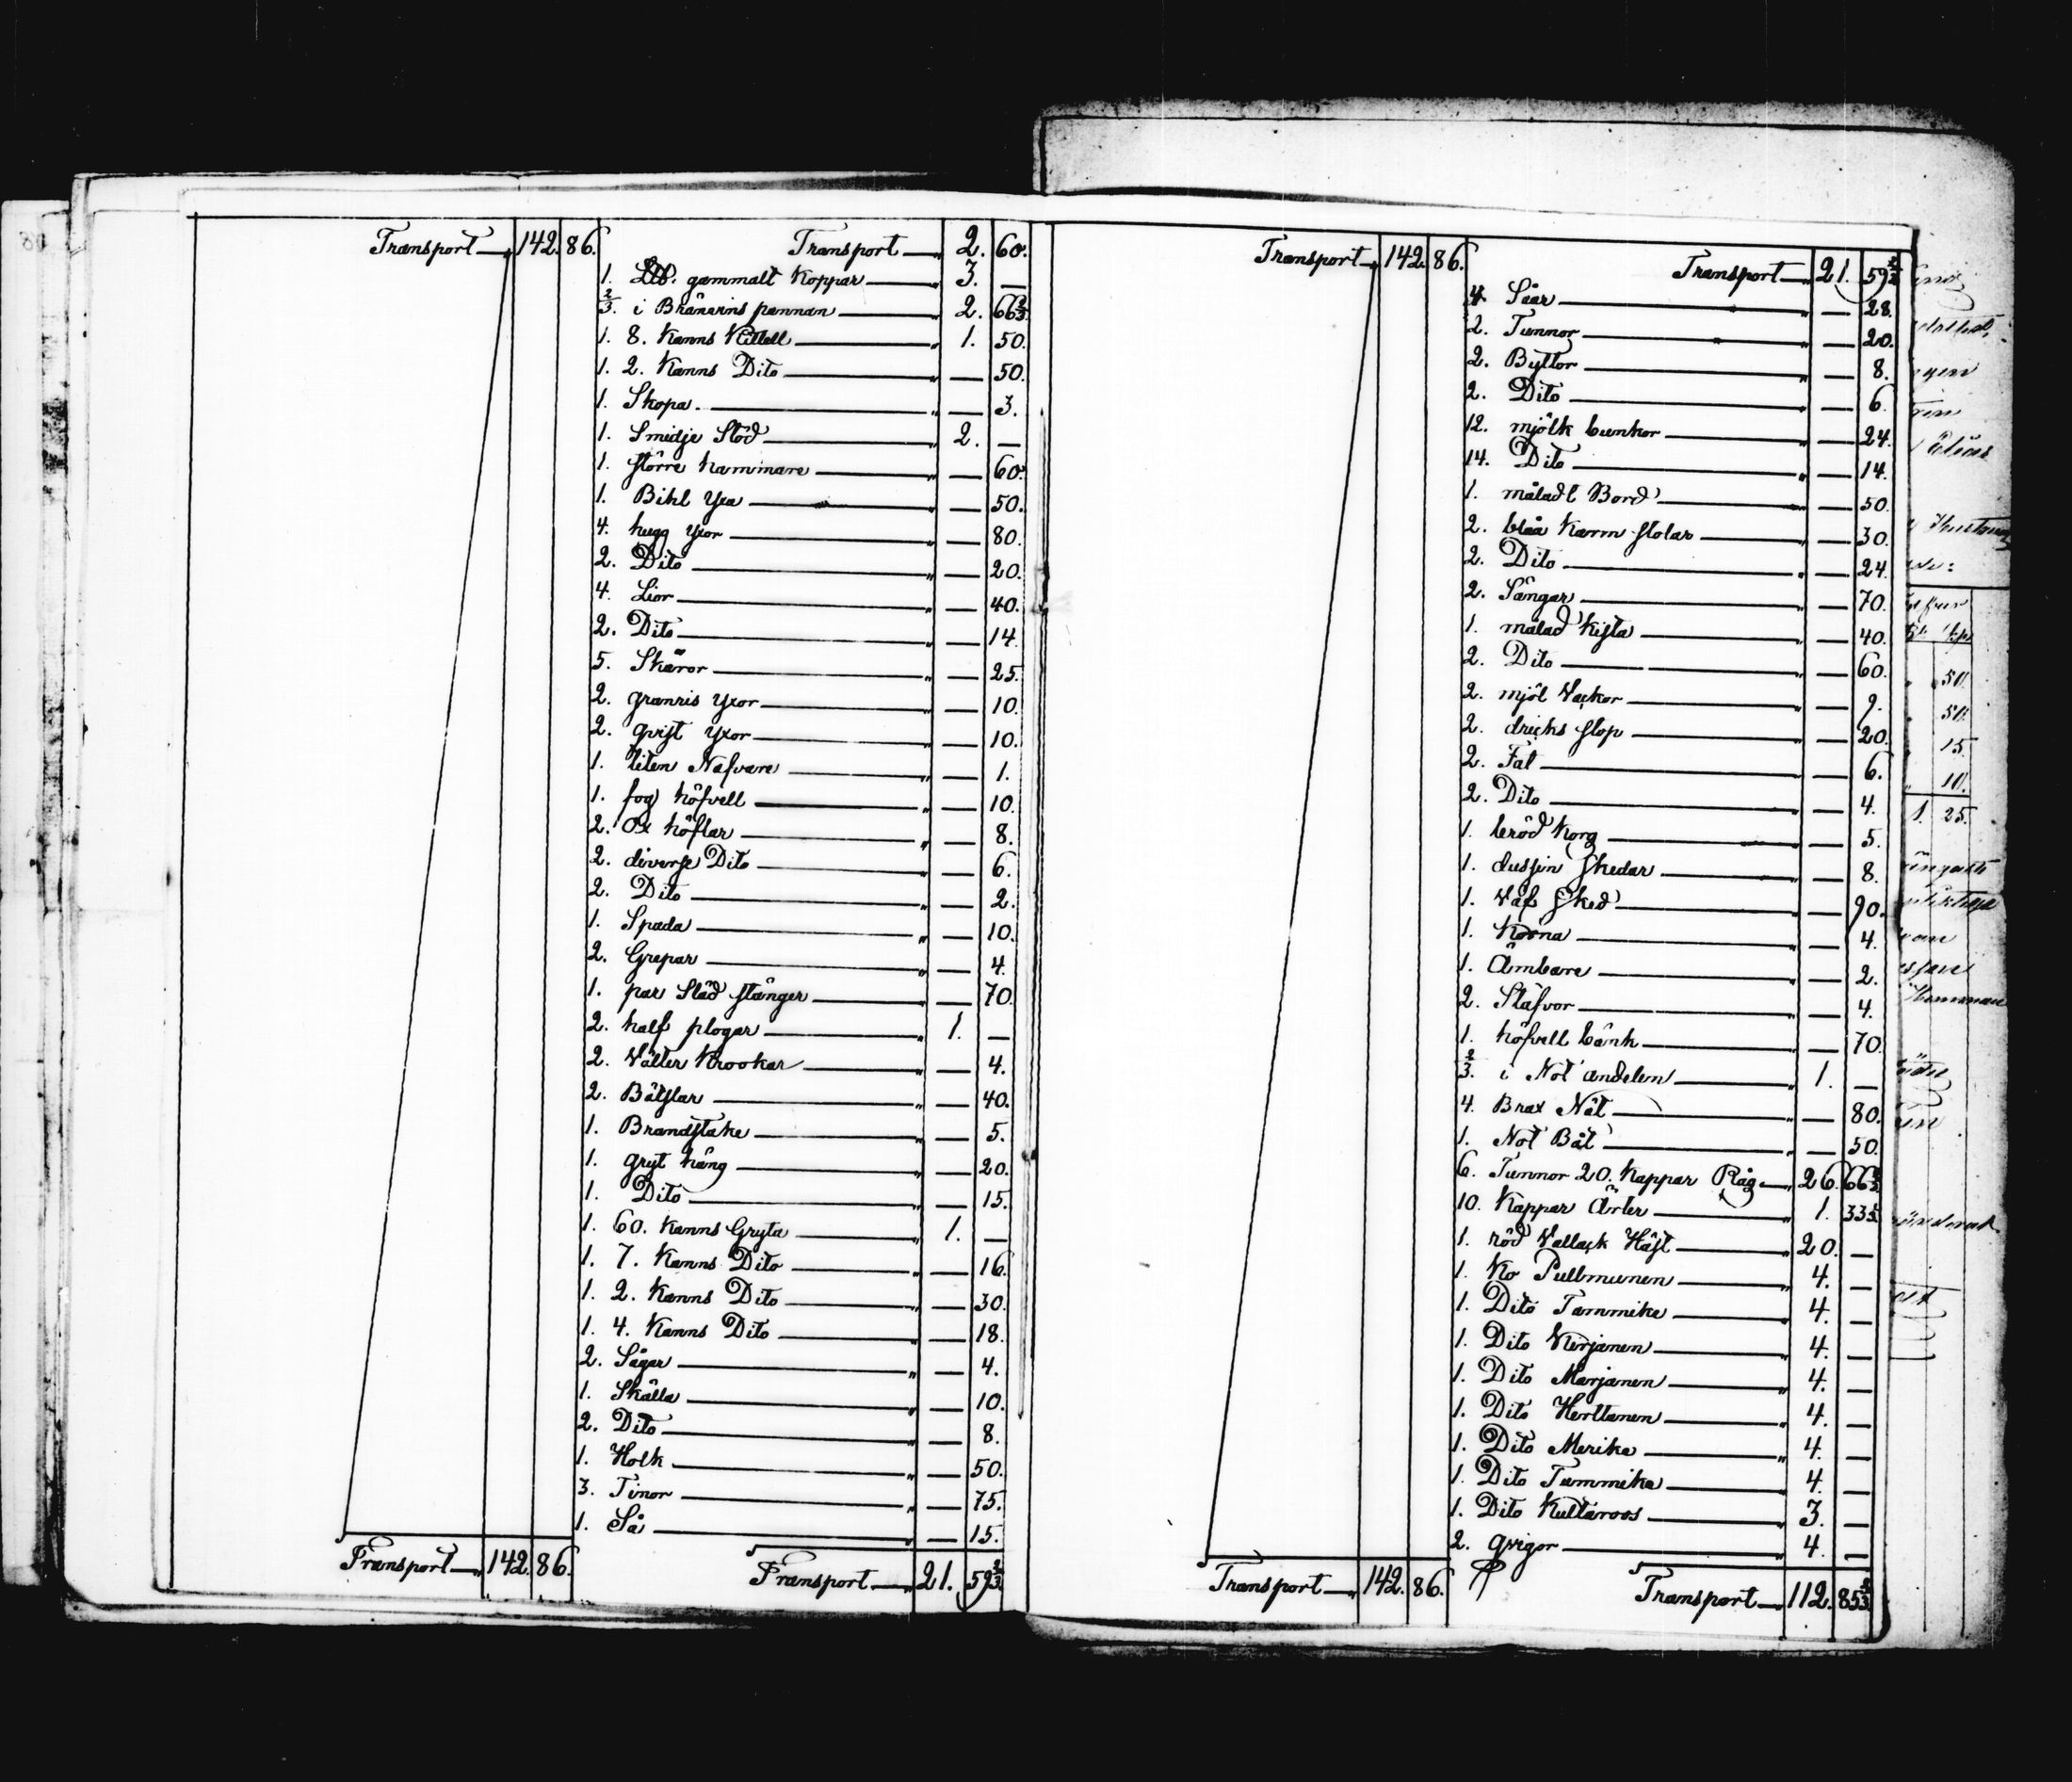 Transport 142. 86.
Transport 2. 60.
1. L℔. gammalt Koppar 3. —
2/3. i Bränvins pannan 2. 66 2/3
1. 8. Kanns Kittell 1. 50.
1. 2. Kanns Dito — 50.
1. Skopa. — 3.
1. Smidje Stöd 2. —
1. större hammare — 60.
1. Bihl Yxa — 50.
4. hugg Yxor — 80.
2. Dito — 20.
4. Lior — 40.
2. Dito — 14.
5. Skäror — 25.
2. granris Yxor — 10.
2. qvist Yxor — 10.
1. liten Nafvare — 1.
1. fog höfvell — 10.
2. Ox höflar — 8.
2. diverse Dito — 6.
2. Dito — 2.
1. Spada — 10.
2. Grepar — 4.
1. par Släd stänger — 70.
2. half plogar 1. —
2. Välter Krookar — 4.
2. Bätslar — 40.
1. Brandstake — 5.
1. gryt häng — 20.
1. Dito — 15.
1. 60. Kanns Gryta 1. —
1. 7. Kanns Dito — 16.
1. 2. Kanns Dito — 30.
1. 4. Kanns Dito — 18.
2. Sågar — 4.
1. Skälla — 10.
2. Dito — 8.
1. Holk — 50.
3. Tinor — 75.
1. Så — 15.
Transport 142. 86.
Transport 21. 59 2/3
Transport 142. 86.
Transport 21. 59 2/3
4. Såar — 28.
2. Tunnor — 20.
2. Byttor — 8.
2. Dito — 6.
12. mjölk bunkor — 24.
14. Dito — 14.
1. måladt Bord — 50.
2. blåa Karm stolar — 30.
2. Dito — 24.
2. Sängar — 70.
1. målad Kista — 40.
2. Dito — 60.
2. mjöl Vackor — 9.
2. dricks stop — 20.
2. Fat — 6.
2. Dito — 4.
1. bröd Korg — 5.
1. dussin Skedar — 8.
1. Väf Sked — 90.
1. Körna — 4.
1. Ämbare — 2.
2. Stäfvor — 4.
1. höfvell bänk — 70.
2/3. i Not andelen 1. —
4. Brax Nät — 80.
1. Not Båt — 50.
6. Tunnor 20. Kappar Råg 26. 66 2/3
10. Kappar Ärter 1. 33 1/3
1. röd Vallack Häst 20. —
1. Ko Pulbmunen 4. —
1. Dito Tammike 4. —
1. Dito Kirjanen 4. —
1. Dito Marjanen 4. —
1. Dito Herttanen 4. —
1. Dito Merike 4. —
1. Dito Tummike 4. —
1. Dito Kultaroos 3. —
2. qvigor 4. —
Transport 142. 86.
Transport 112. 85 2/3
50.
50.
15.
10.
1. 25.